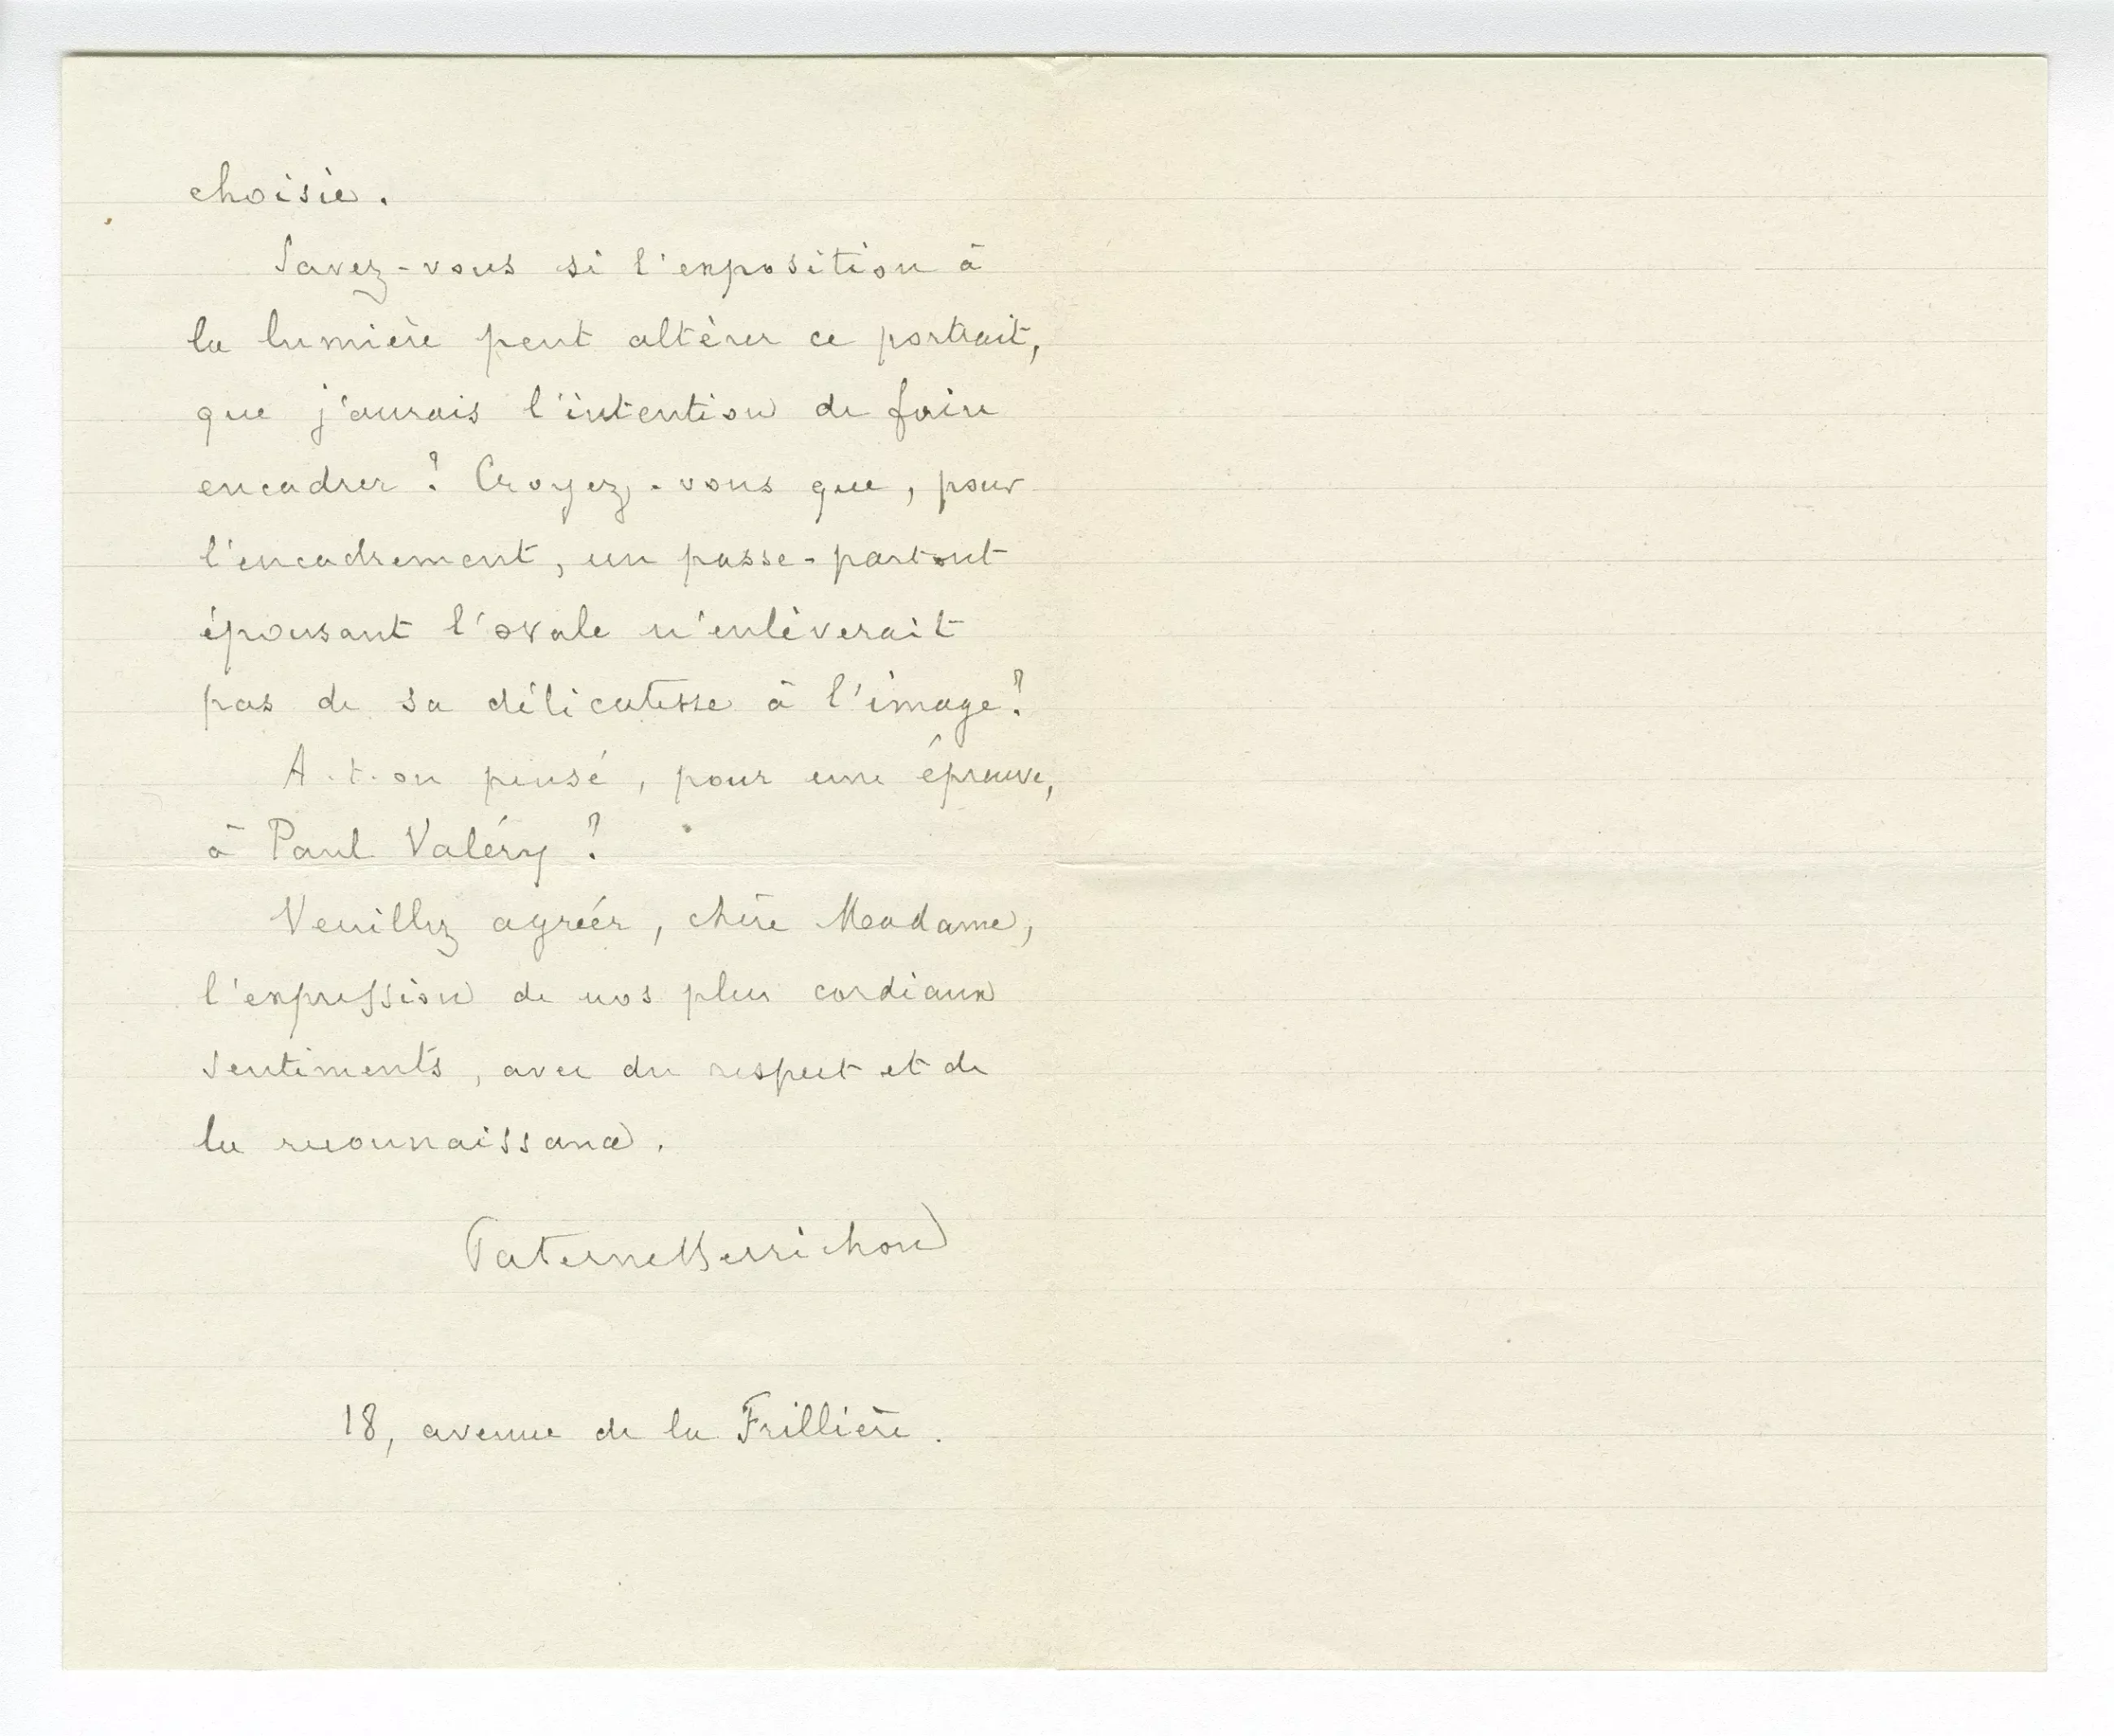 choisie.
Savez-vous si l'exposition à
la lumière peut altérer ce portrait,
que j'aurais l'intention de faire
encadrer ? Croyez-vous que, pour
l'encadrement, un passe-partout
épousant l'ovale n'enlèverait
pas de sa délicatesse à l'image ?
A-t-on pensé, pour une épreuve,
à Paul Valéry ?
Veuillez agréer, chère Madame,
l'expression de nos plus cordiaux
sentiments, avec du respect et de
la reconnaissance.
Paterne Berrichon
18, avenue de la Frillière.